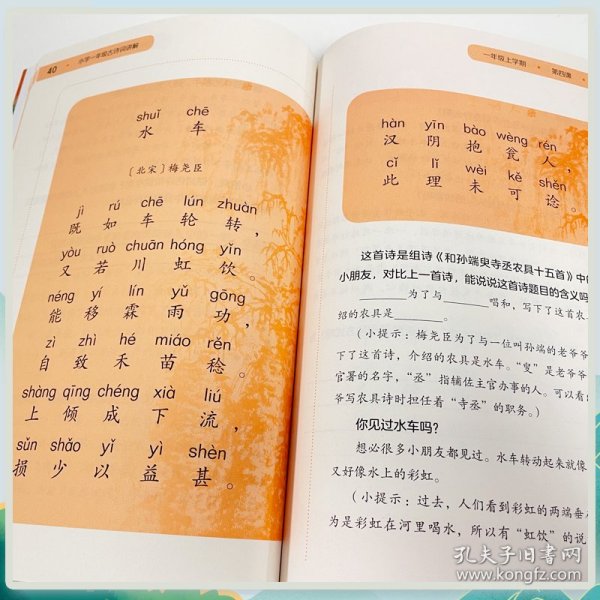 40 小学一年级古诗词讲解
shuǐ chē
水 车
〔北宋〕梅尧臣
jì rú chē lún zhuàn
既 如 车 轮 转，
yòu ruò chuān hóng yǐn
又 若 川 虹 饮。
néng yí lín yǔ gōng
能 移 霖 雨 功，
zì zhì hé miáo rěn
自 致 禾 苗 稔。
shàng qīng chéng xià liú
上 倾 成 下 流，
sǔn shǎo yǐ yì shèn
损 少 以 益 甚。
一年级上学期 · 第四课 ·
hàn yīn bào wèng rén
汉 阴 抱 瓮 人，
cǐ lǐ wèi kě shěn
此 理 未 可 谂。
这首诗是组诗《和孙端叟寺丞农具十五首》中
小朋友，对比上一首诗，能说说这首诗题目的含义吗
______为了与______唱和，写下了这首农
绍的农具是______。
（小提示：梅尧臣为了与一位叫孙端的老爷爷
下了这首诗，介绍的农具是水车。“叟”是老爷爷
官署的名字，“丞”指辅佐主官办事的人。可以看
爷写农具诗时担任着“寺丞”的职务。）
你见过水车吗？
想必很多小朋友都见过。水车转动起来就像
又好像水上的彩虹。
（小提示：过去，人们看到彩虹的两端垂
为是彩虹在河里喝水，所以有“虹饮”的说
孔夫子旧书网
www.kongfz.com